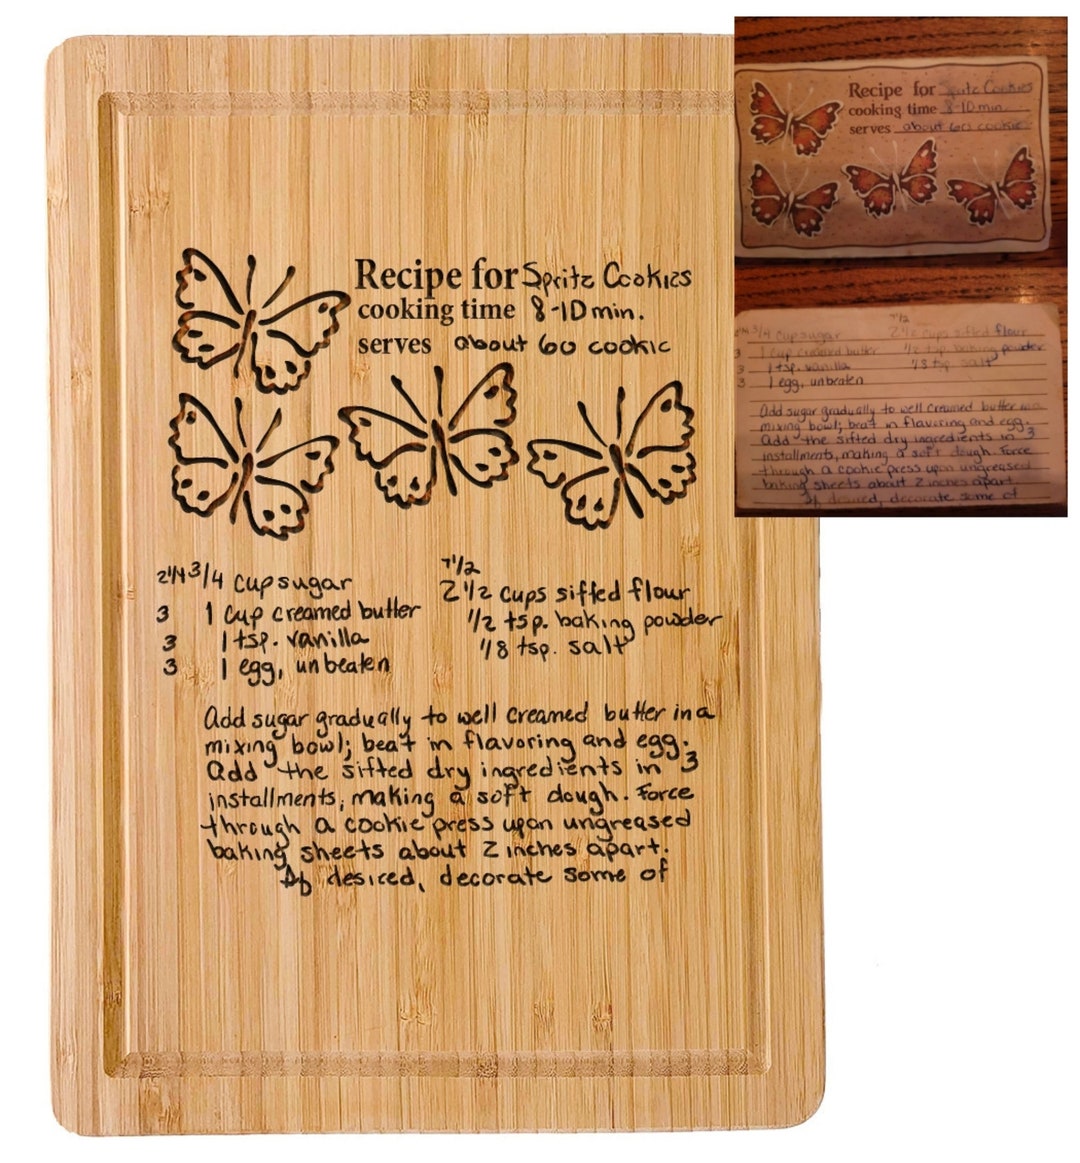 Recipe for Spritz Cookies
cooking time 8-10 min.
serves about 60 cookie
2 1/4 3/4 cup sugar
3 1 cup creamed butter
3 1 tsp. vanilla
3 1 egg, unbeaten
7 1/2
2 1/2 cups sifted flour
1/2 tsp. baking powder
1/8 tsp. salt
Add sugar gradually to well creamed butter in a
mixing bowl; beat in flavoring and egg.
Add the sifted dry ingredients in 3
installments, making a soft dough. Force
through a cookie press upon ungreased
baking sheets about 2 inches apart.
If desired, decorate some of
Recipe for Spritz Cookies
cooking time 8-10 min.
serves about 60 cookie
3/4 cup sugar
3 1 cup creamed butter
3 1 tsp. vanilla
3 1 egg, unbeaten
7 1/2
2 1/2 cups sifted flour
1/2 tsp baking powder
1/8 tsp salt
Add sugar gradually to well creamed butter in a
mixing bowl; beat in flavoring and egg.
Add the sifted dry ingredients in 3
installments, making a soft dough. Force
through a cookie press upon ungreased
baking sheets about 2 inches apart
If desired, decorate some of